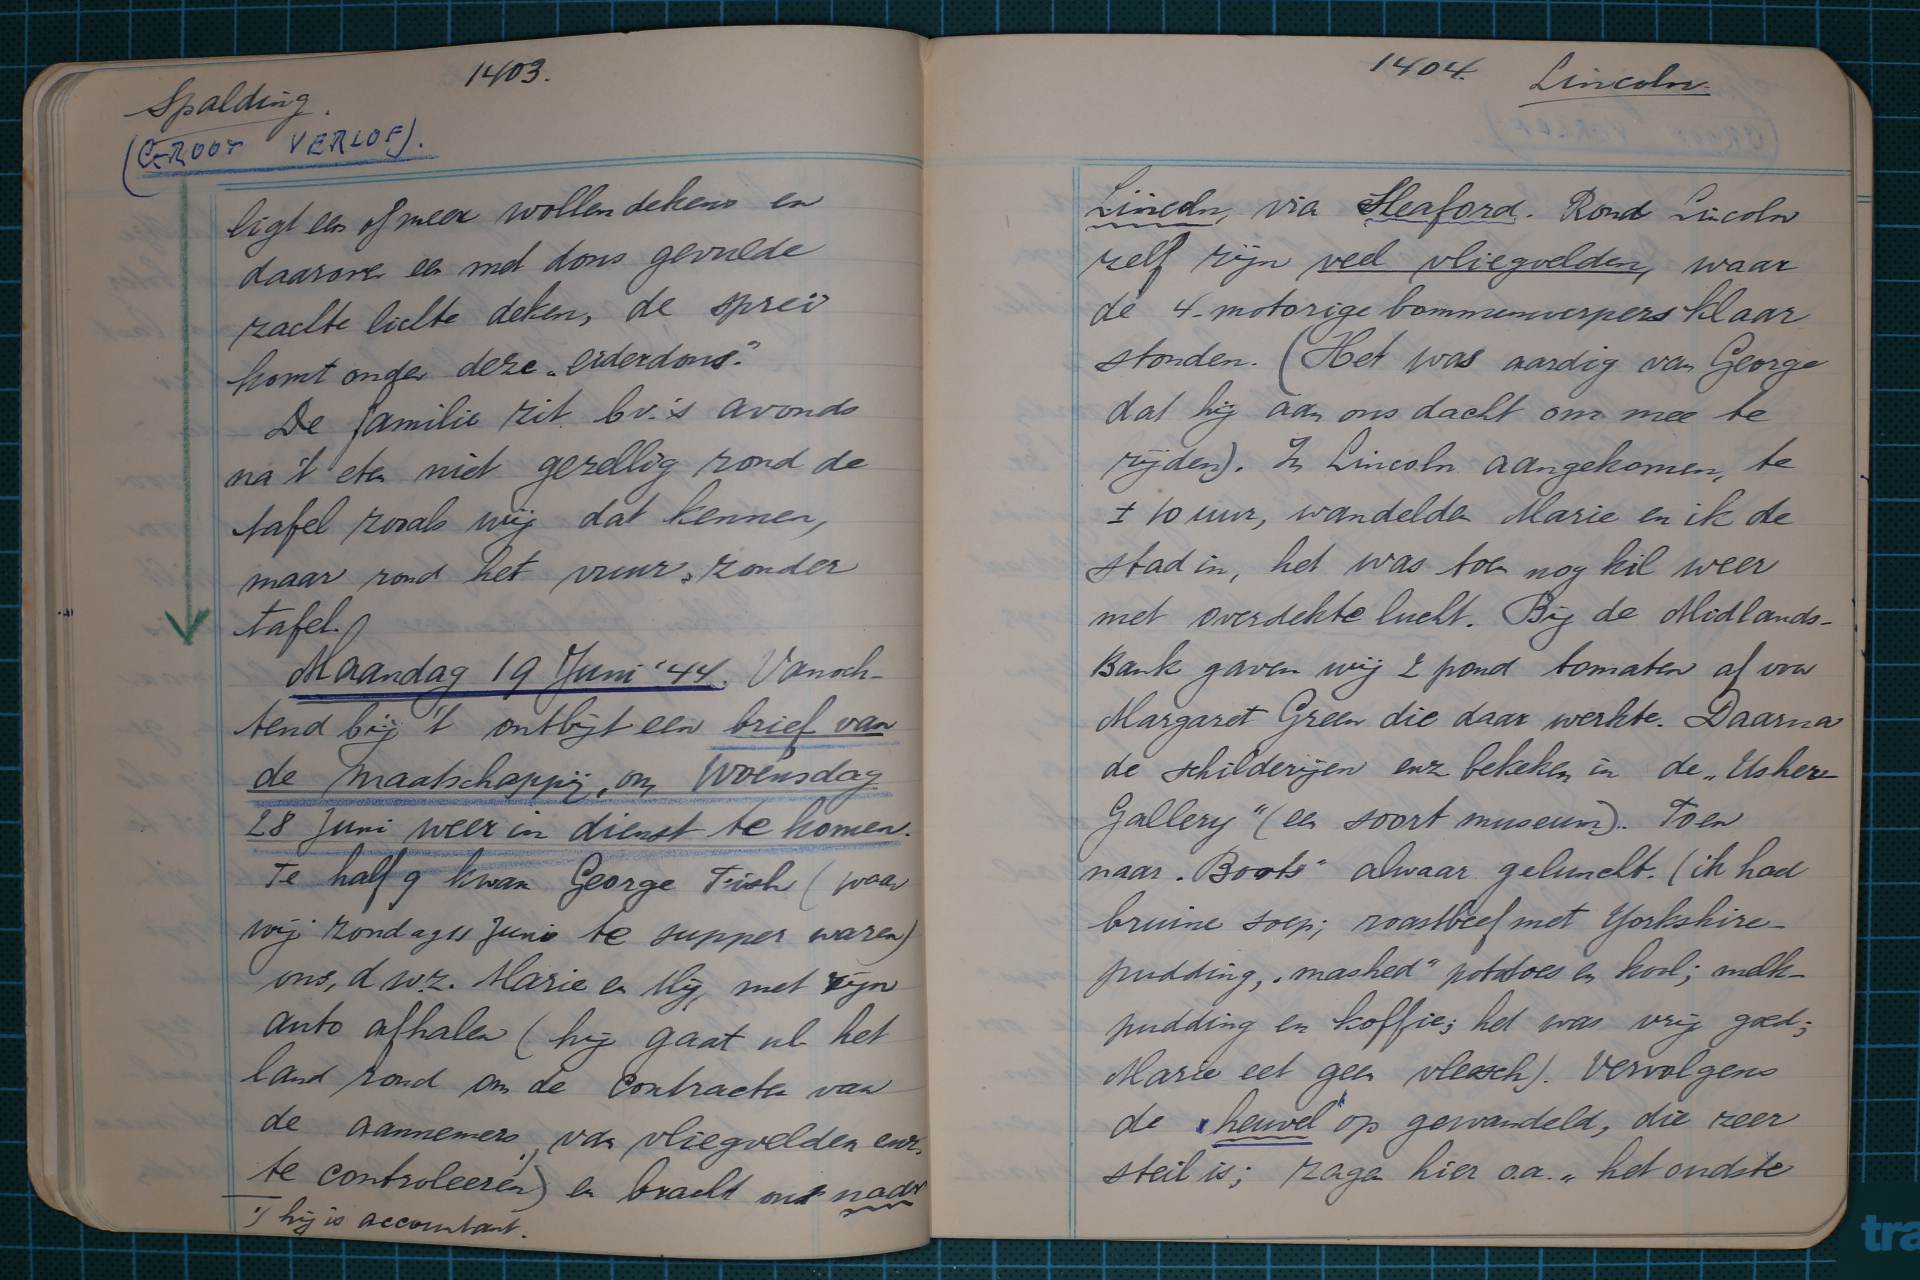 1403.
Spalding.
(GROOT VERLOF).
ligt een of meer wollen dekens en
daarover een met dons gevulde
zachte lichte deken, de sprei
komt onder deze „eiderdons."
De familie zit bv. 's avonds
na 't eten niet gezellig rond de
tafel zooals wij dat kennen,
maar rond het vuur, zonder
tafel.
Maandag 19 Juni '44. Vanoch-
tend bij 't ontbijt een brief van
de maatschappij, om Woensdag
28 Juni weer in dienst te komen.
Te half 9 kwam George Fish (waar
wij zondag 11 Juni te supper waren)
ons, d.w.z. Marie en Mij, met zijn
auto afhalen (hij gaat nl. het
land rond om de contracten van
de aannemers, van vliegvelden enz.
te controleeren) en bracht ons naar
1) hij is accountant.
1404. Lincoln.
Lincoln, via Sleaford. Rond Lincoln
zelf zijn veel vliegvelden, waar
de 4-motorige bommenwerpers klaar
stonden. (Het was aardig van George
dat hij aan ons dacht om mee te
rijden). In Lincoln aangekomen, te
± 10 uur, wandelden Marie en ik de
stad in, het was toen nog kil weer
met overdekte lucht. Bij de Midlands-
Bank gaven wij 2 pond tomaten af voor
Margaret Green die daar werkte. Daarna
de schilderijen enz bekeken in de „Usher-
Gallery" (een soort museum). Toen
naar „Boots" alwaar geluncht. (ik had
bruine soep; roastbeef met Yorkshire-
pudding, „mashed" potatoes en kool; melk-
pudding en koffie; het was vrij goed;
Marie eet geen vleesch). Vervolgens
de „heuvel" op gewandeld, die zeer
steil is; zagen hier o.a. „het oudste